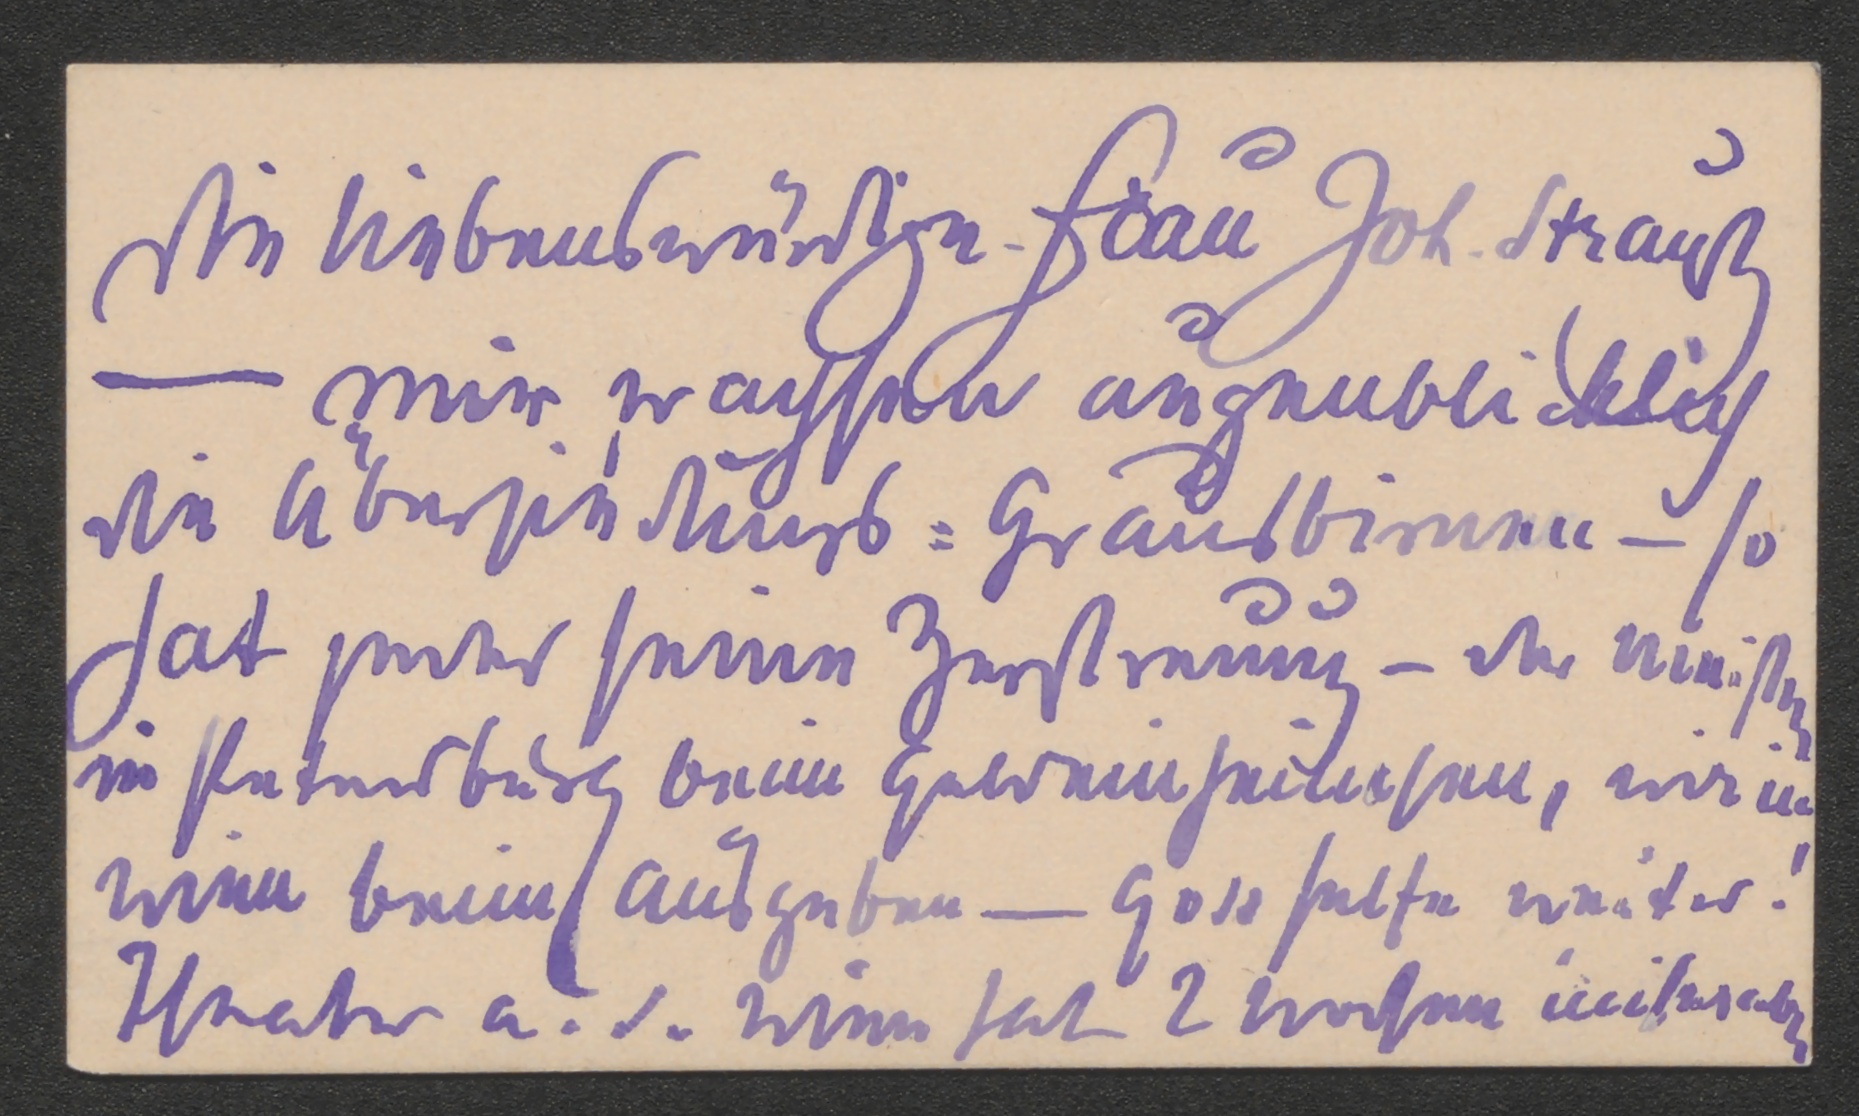 die liebenswürdige Frau Joh. Strauß
— mir wachsen augenblicklich
die Übersiedlungs = Grausbirnen — so
hat jeder seine Zerstreuung — der Minister
in Petersburg beim Geldein, wir in
Wien beim Ausgeben — Gott helfe weiter!
Theater a. d. Wien hat 2 Wochen